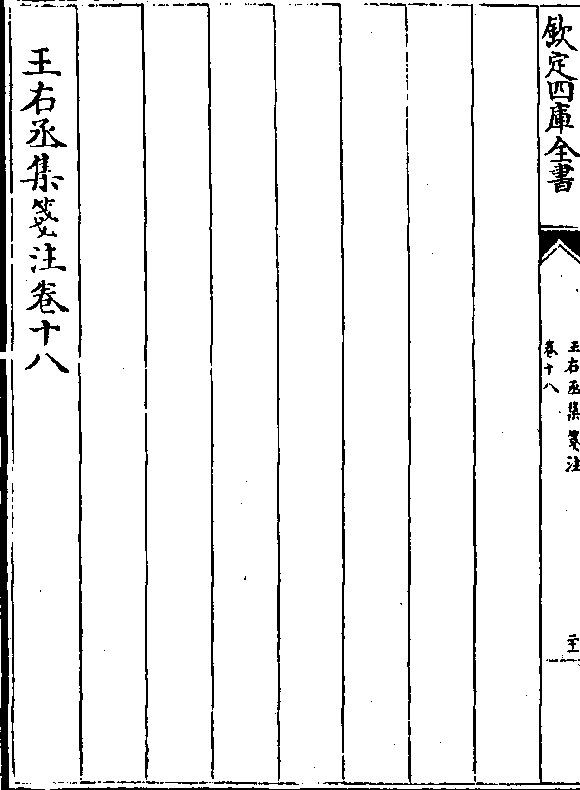 欽定四庫全書
王右丞集箋注
卷十八
王右丞集箋注卷十八